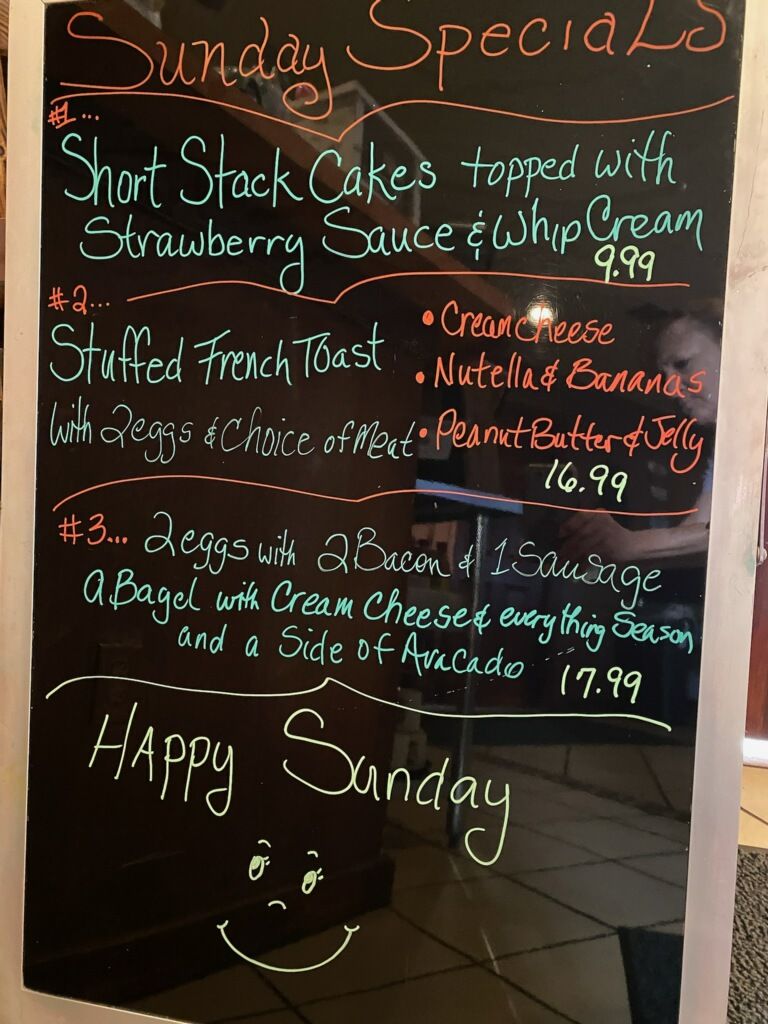 Sunday Specials
#1...
Short Stack Cakes topped with
Strawberry Sauce & Whip Cream
9.99
#2...
Stuffed French Toast
with 2eggs & Choice of Meat
• Cream cheese
• Nutella & Bananas
• Peanut Butter & Jelly
16.99
#3... 2eggs with 2Bacon & 1Sausage
a Bagel with Cream Cheese & everything Season
and a Side of Avacado 17.99
Happy Sunday